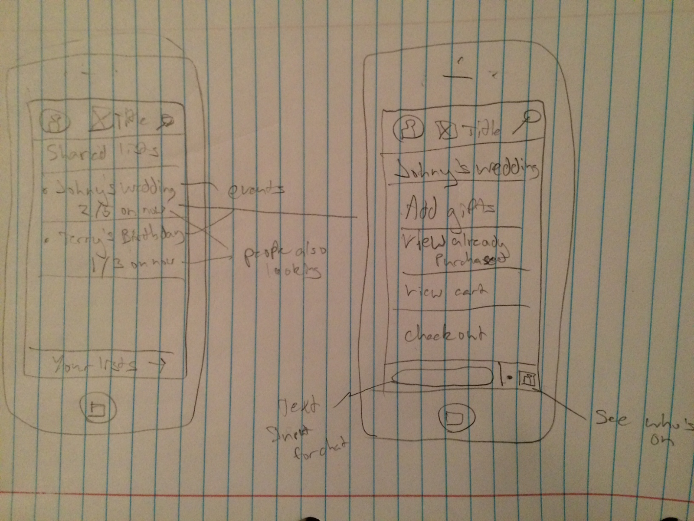 Title
Shared lists
• Johny's wedding
2/5 on now
• Terry's Birthday
1/3 on now
Your lists →
events
people also
looking
Title
Johny's wedding
Add gifts
View already
Purchased
view cart
checkout
Text
for chat
See who's
on